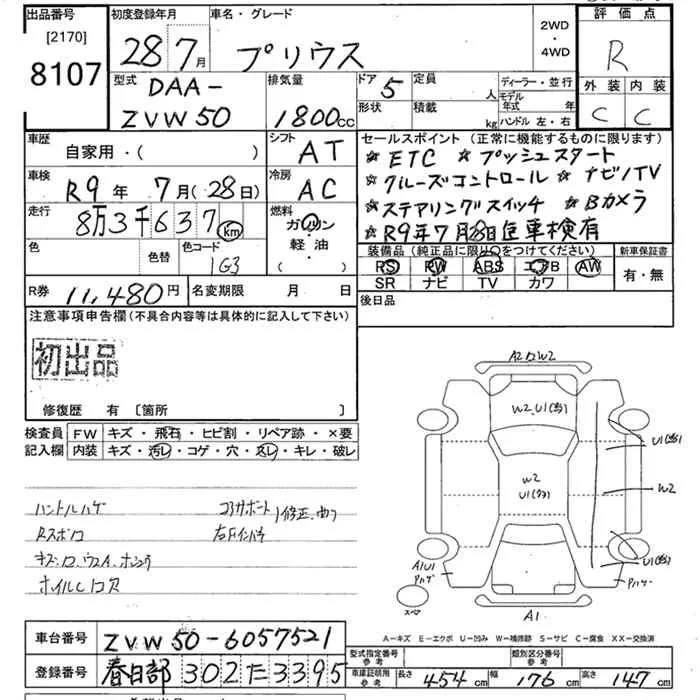 出品番号 初度登録年月 車名・グレード 2WD・4WD 評価点
[2170]
8107 28年7月 プリウス R
型式 DAA-ZVW50 排気量 1800cc ドア 5 定員 人 ディーラー・並行
形状 積載 kg モデル年式 年 ハンドル 左・右
外装 内装
C C
車歴 自家用・( ) シフト AT
車検 R9年 7月(28日) 冷房 AC
走行 8万3千637km 燃料 ガソリン 軽・油 ( )
色 色替 色コード 1G3
R券 11,480円 名変期限 月 日
セールスポイント(正常に機能するものに限ります)
☆ETC ☆プッシュスタート
☆クルーズコントロール ☆ナビ/TV
☆ステアリングスイッチ ☆Bカメラ
☆R9年7月28日迄車検有
装備品(純正品に限り○をつけてください) 新車保証書
RS RW ABS エアB AW 有・無
SR ナビ TV カワ
後日品
注意事項申告欄(不具合内容等は具体的に記入して下さい)
初出品
修復歴 有 〔箇所 〕
検査員 FW キズ・飛石・ヒビ割・リペア跡・×要
記入欄 内装 キズ・汚レ・コゲ・穴・スレ・キレ・破レ
ハンドルハゲ コアサポート 修正、曲り
Rスポロ 右Fインパネ
ホイルC
A2 W2
W2 U1
U1
W2
W2
U1
U1
A1U1
Pハゲ
Pハゲ
スペア
A1
A-キズ E-エクボ U-凹み W-補修跡 S-サビ C-腐食 XX-交換済
車台番号 ZVW50-6057521
型式指定番号 参考 類別区分番号 参考
登録番号 春日部302た3395
車庫証明用 参考 長さ 454cm 幅 176cm 高さ 147cm